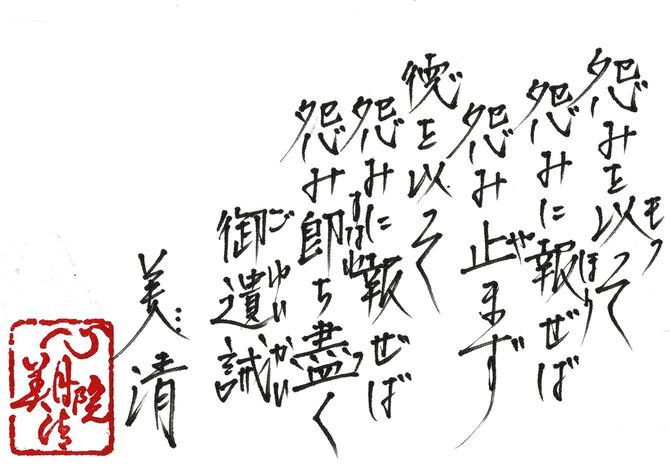 怨みを以って
怨みに報ぜば
怨み止まず
徳を以って
怨みに報ぜば
怨み即ち盡く
御遺誡
美清
もっ
ほう
や
すなわ
つ
ごゆいかい
心月院
美清